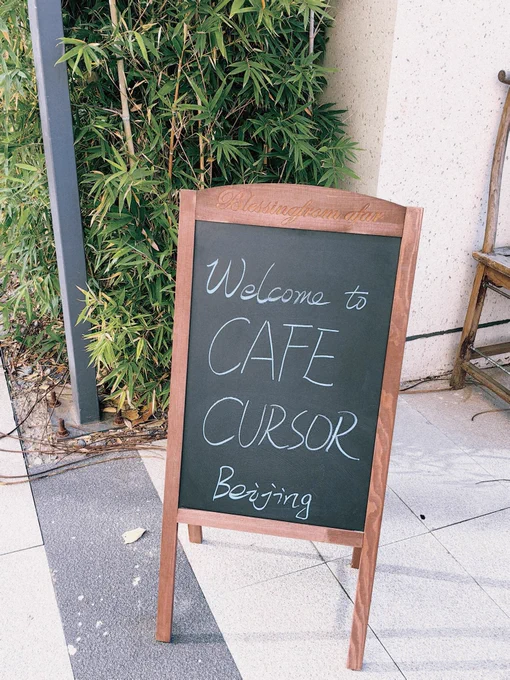 Blessing from afar
Welcome to
CAFE
CURSOR
Beijing